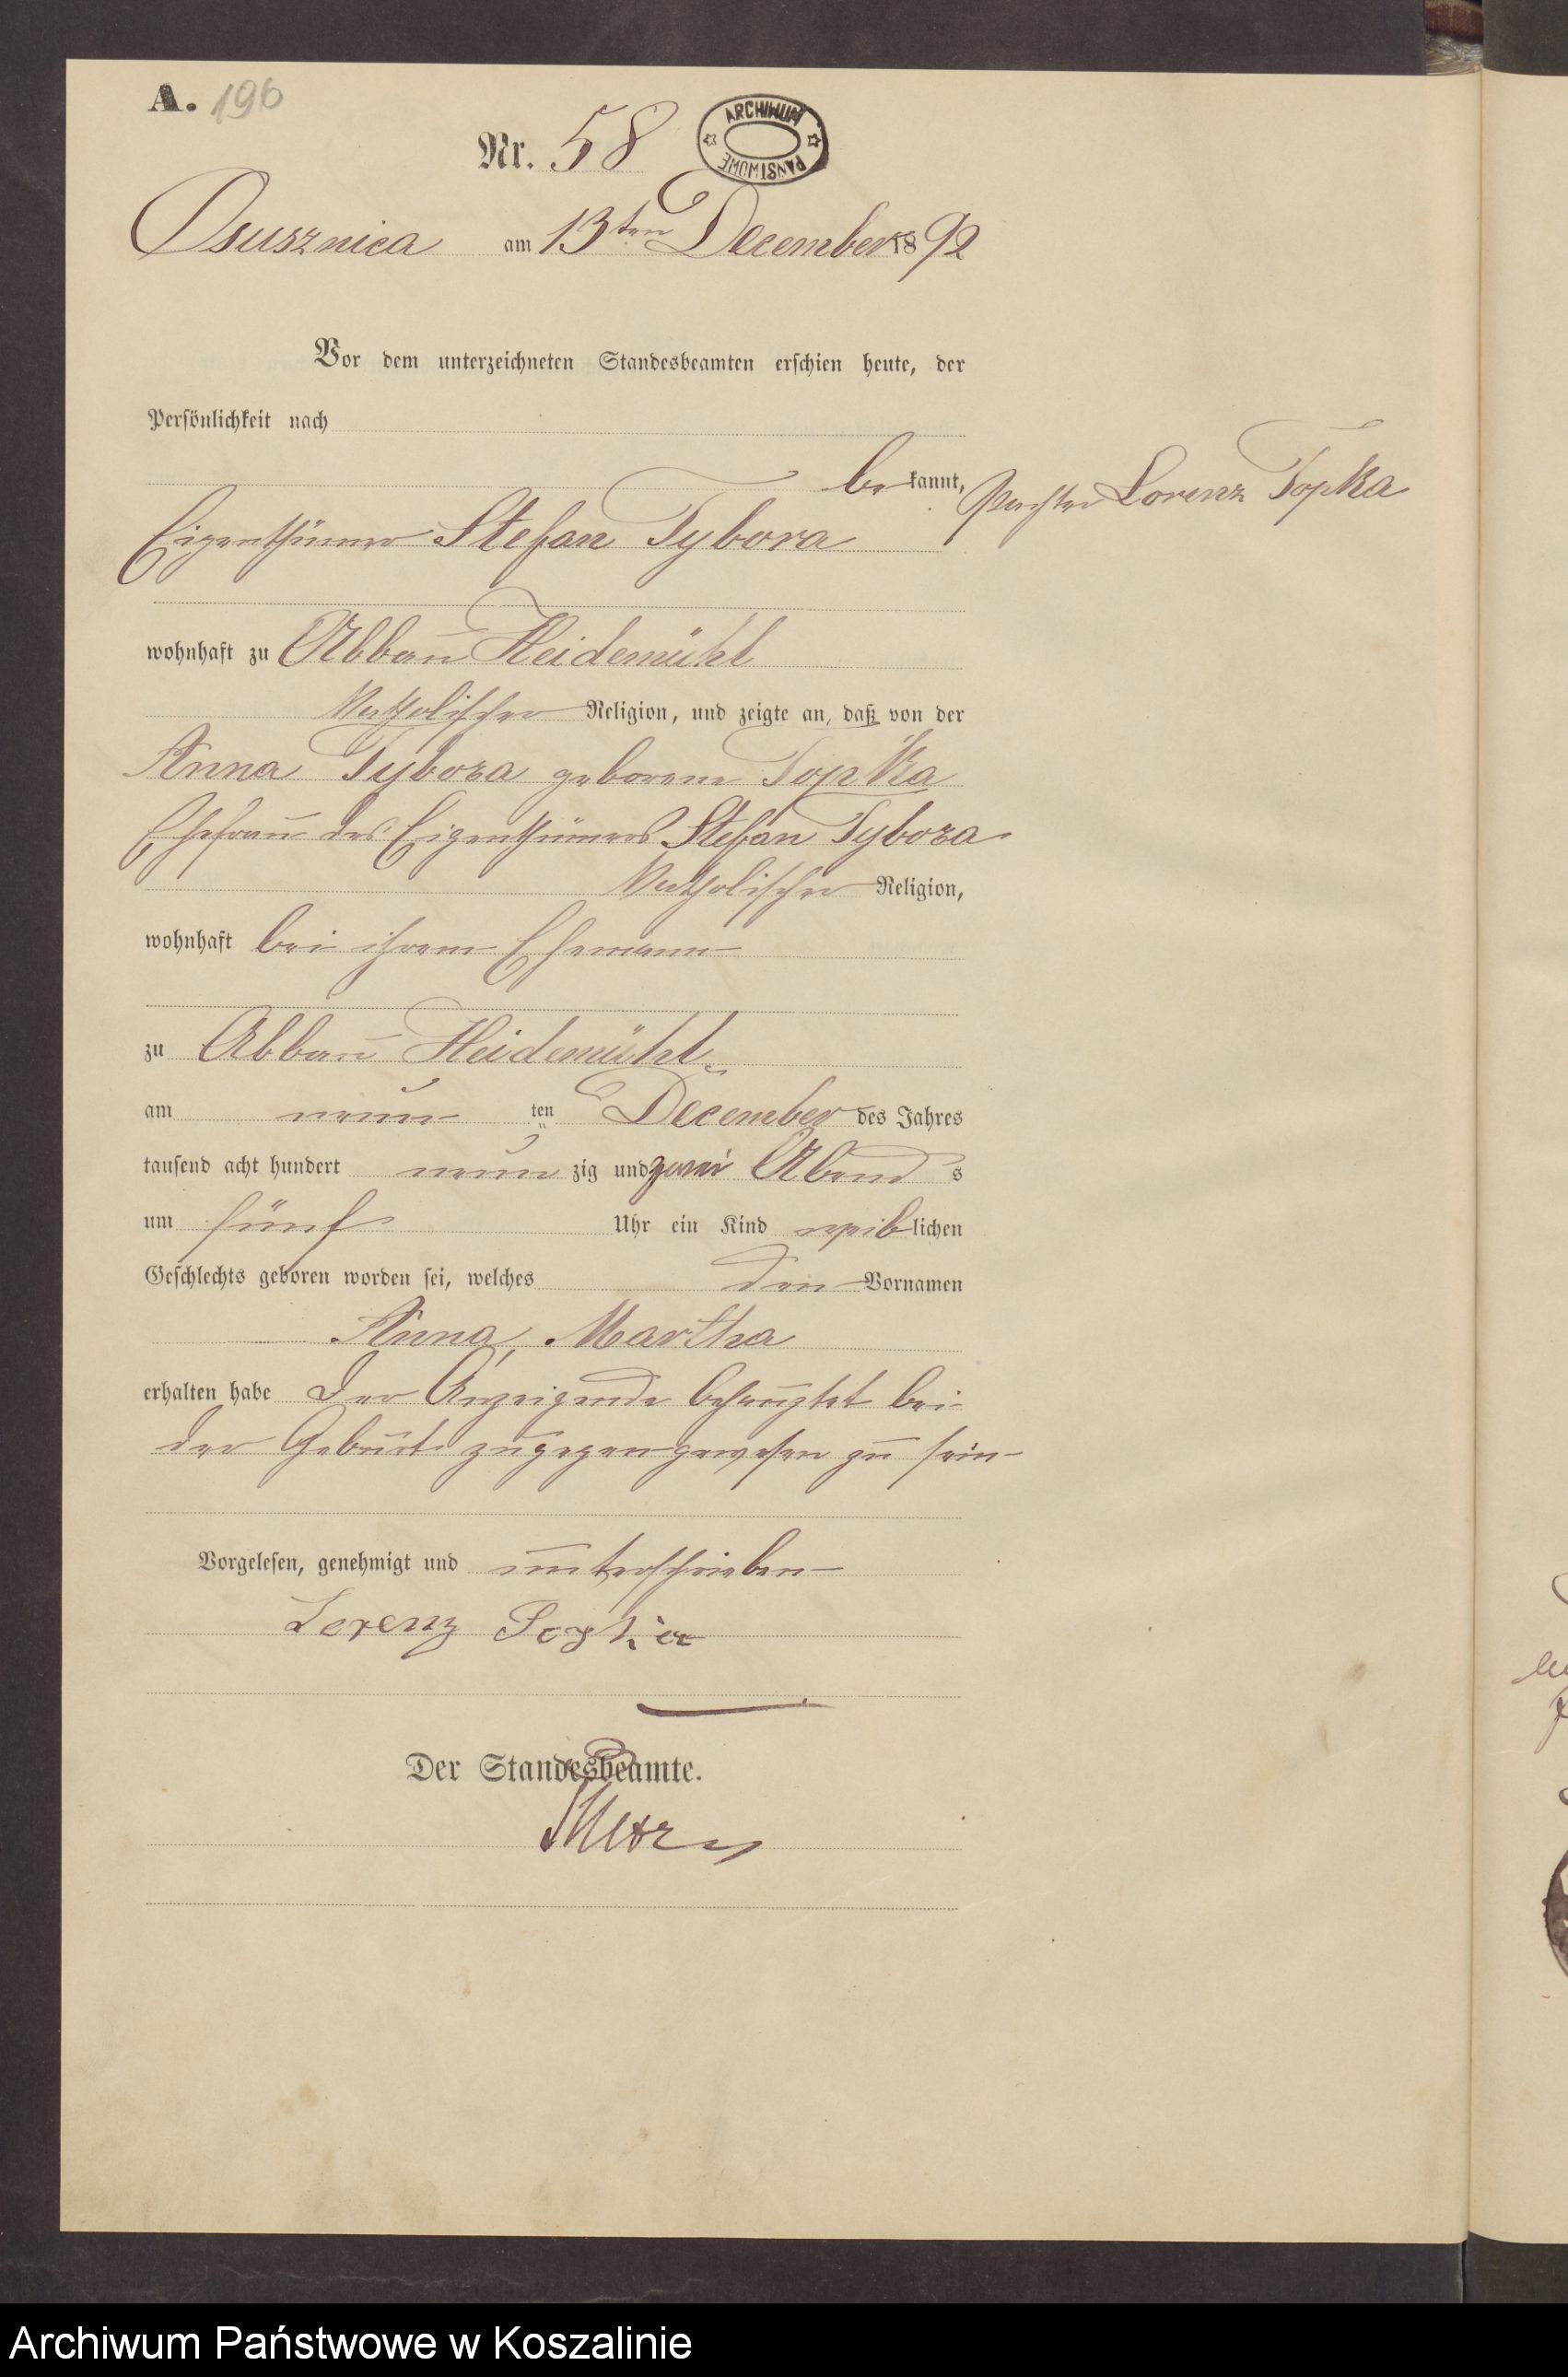 A. 196
Nr. 58
ARCHIWUM PAŃSTWOWE
Osusznica am 13ten December 1892
Vor dem unterzeichneten Standesbeamten erschien heute, der
Persönlichkeit nach
bekannt, Pächter Lorenz Topka
Eigenthümer Stefan Tybora
wohnhaft zu Abbau Heidemühl
katholischer Religion, und zeigte an, daß von der
Anna Tybora geborene Topka
Ehefrau des Eigenthümers Stefan Tybora
katholischer Religion,
wohnhaft bei ihrem Ehemann
zu Abbau Heidemühl
am neunten December des Jahres
tausend acht hundert neunzig und zwei Abends
um fünf Uhr ein Kind weiblichen
Geschlechts geboren worden sei, welches den Vornamen
Anna, Martha
erhalten habe Der Anzeigende behauptet bei
der Geburt zugegen gewesen zu sein
Vorgelesen, genehmigt und unterschrieben
Lorenz Topka
Der Standesbeamte.
Archiwum Państwowe w Koszalinie